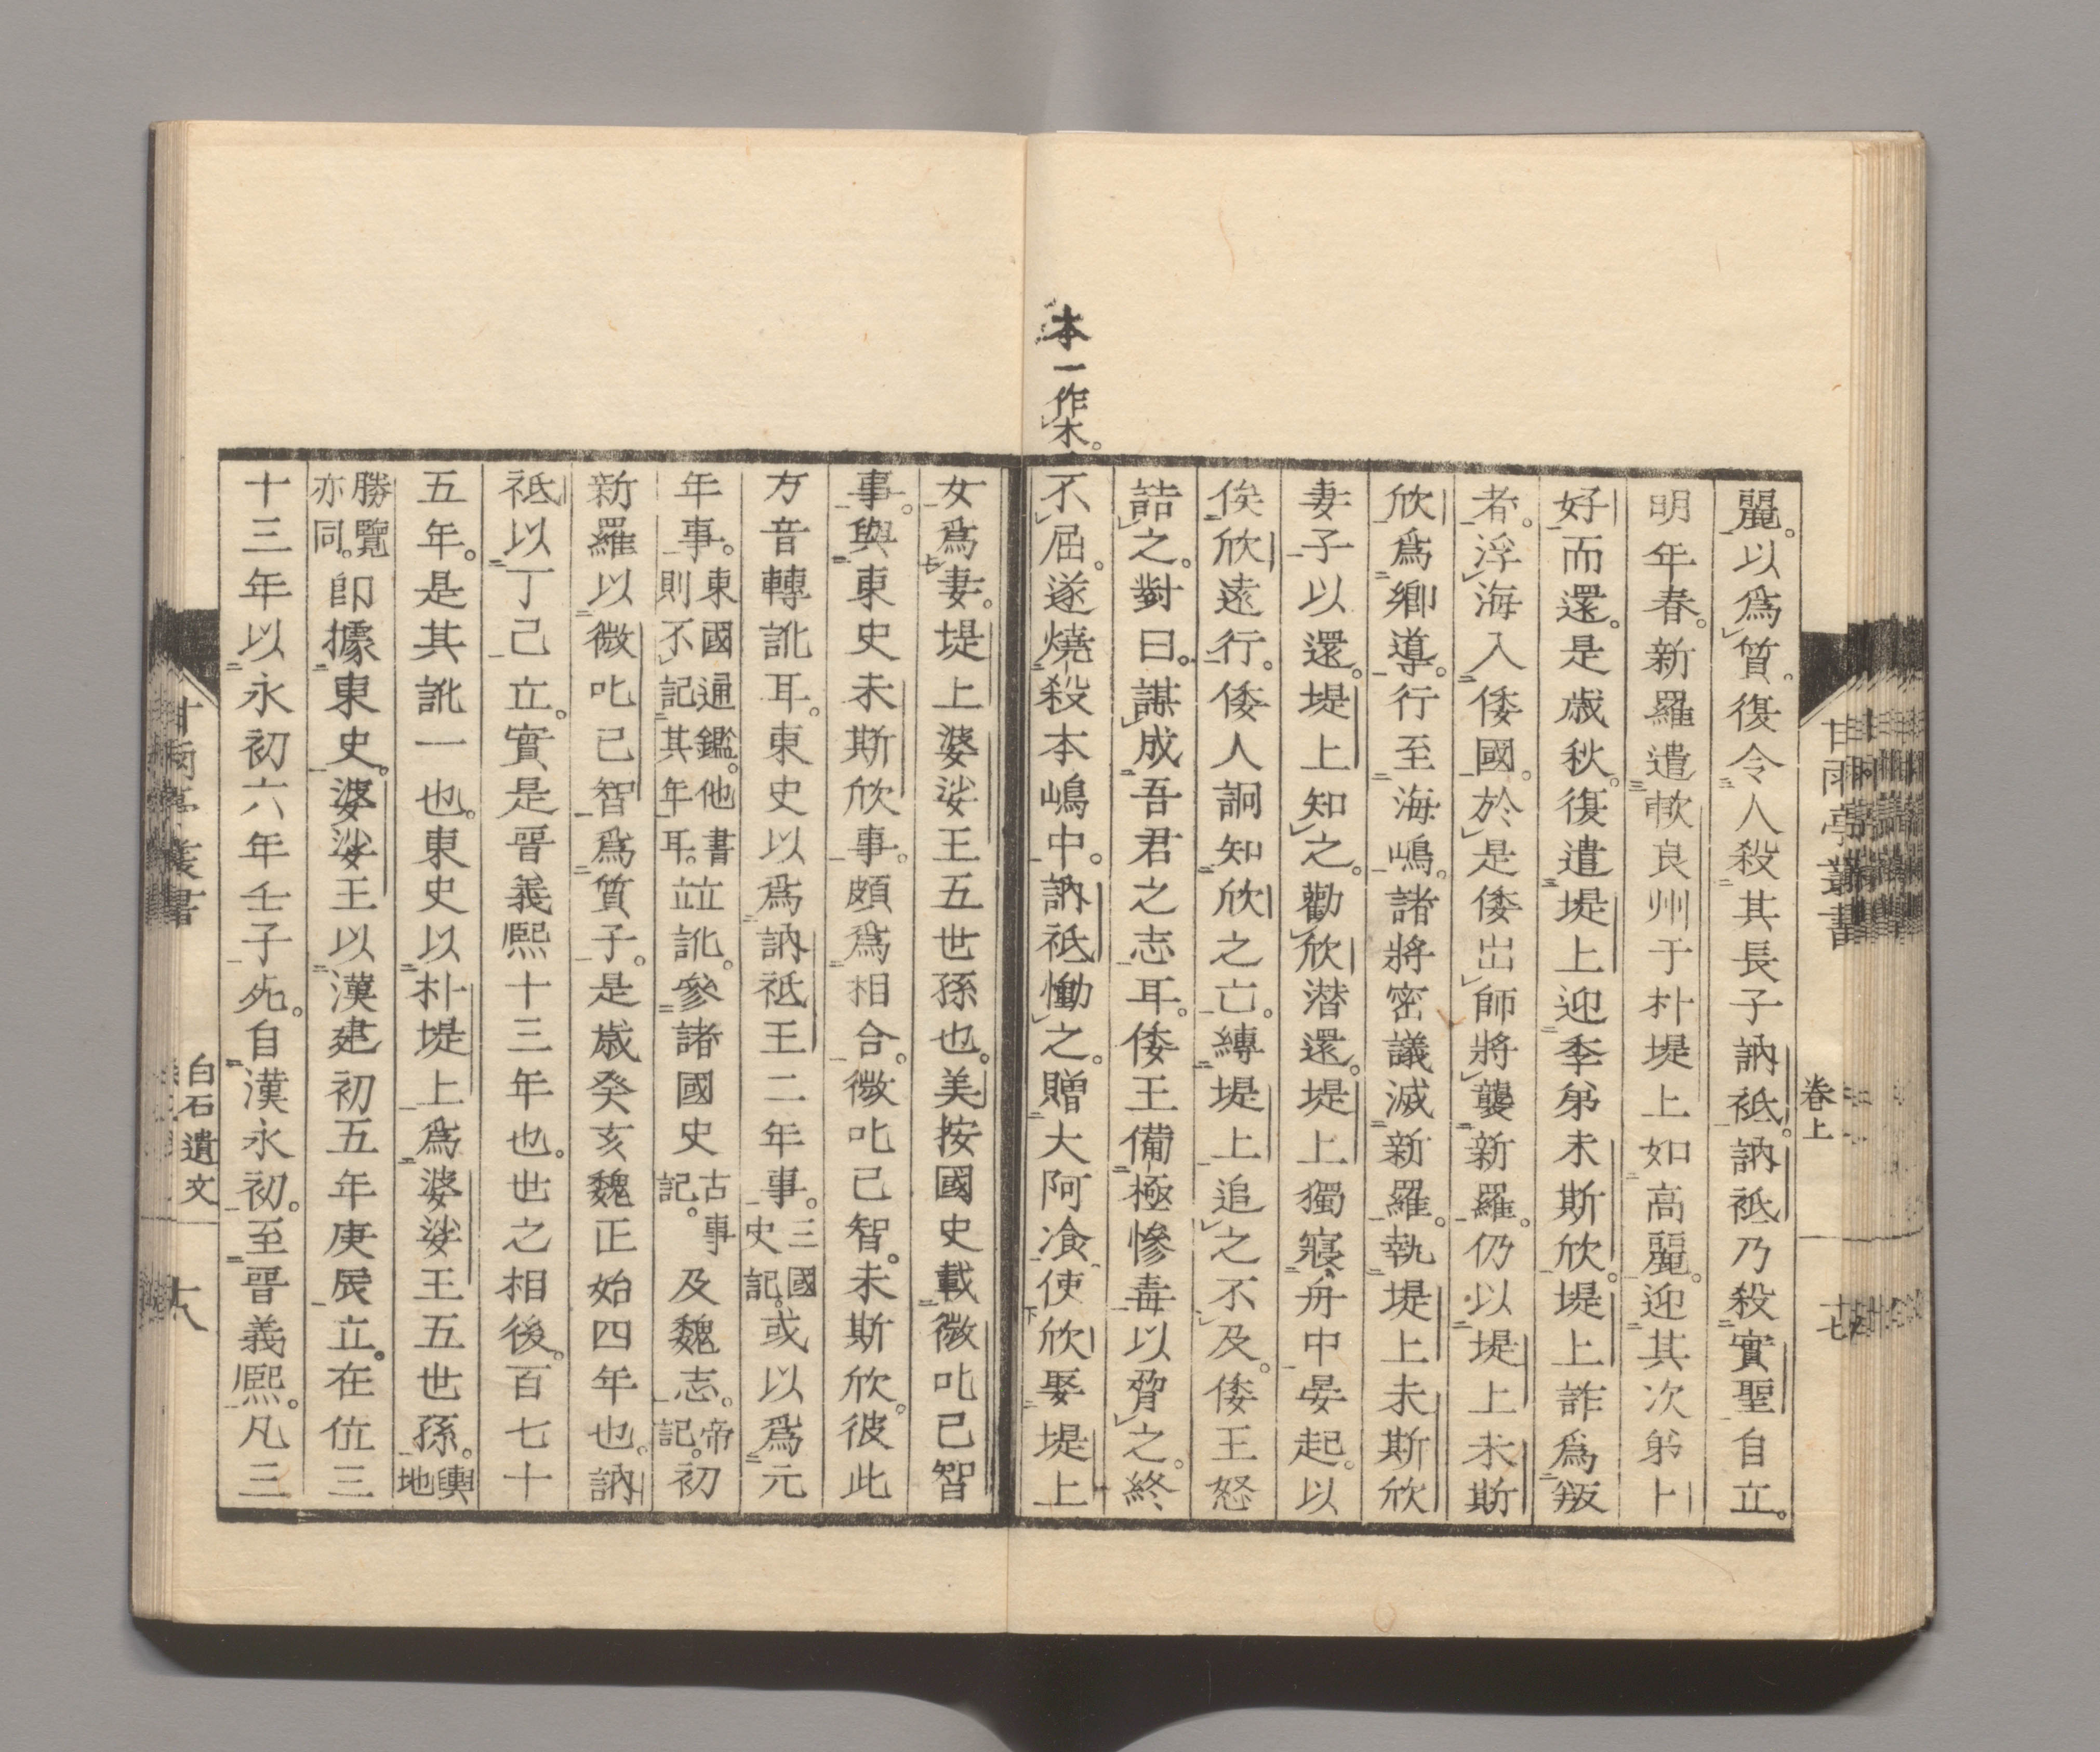 麗。以爲質。復令人殺其長子訥祇。訥祇乃殺實聖自立。
明年春。新羅遣歃良州干朴堤上如高麗。迎其次弟卜
好而還。是歳秋。復遣堤上迎季弟未斯欣。堤上詐爲叛
者。浮海入倭國。於是倭出師將襲新羅。仍以堤上未斯
欣爲鄉導。行至海嶋。諸將密議滅新羅。執堤上未斯欣
妻子以還。堤上知之。勸欣潜還。堤上獨寢舟中晏起。以
俟欣遠行。倭人詗知欣之亡。縛堤上追之不及。倭王怒
詰之。對曰。謀成吾君之志耳。倭王備極慘毒以脅之。終
不屈。遂燒殺本嶋中。訥祇慟之。贈大阿飡使欣娶堤上
本一作木。
卷上
十七
甘雨亭叢書
女爲妻。堤上婆娑王五世孫也。美按國史載微叱己智
事。與東史未斯欣事。頗爲相合。微叱己智。未斯欣。彼此
方音轉訛耳。東史以爲訥祇王二年事。三國史記。或以爲元
年事。東國通鑑。他書則不記其年耳。竝訛。參諸國史古事記。及魏志。帝記。初
新羅以微叱己智爲質子。是歳癸亥魏正始四年也。訥
祇以丁己立。實是晋義熙十三年也。世之相後。百七十
五年。是其訛一也。東史以朴堤上爲婆娑王五世孫。輿地
勝覽亦同。卽據東史。婆娑王以漢建初五年庚辰立。在位三
十三年以永初六年壬子死。自漢永初。至晋義熙。凡三
甘雨亭叢書
白石遺文
十八